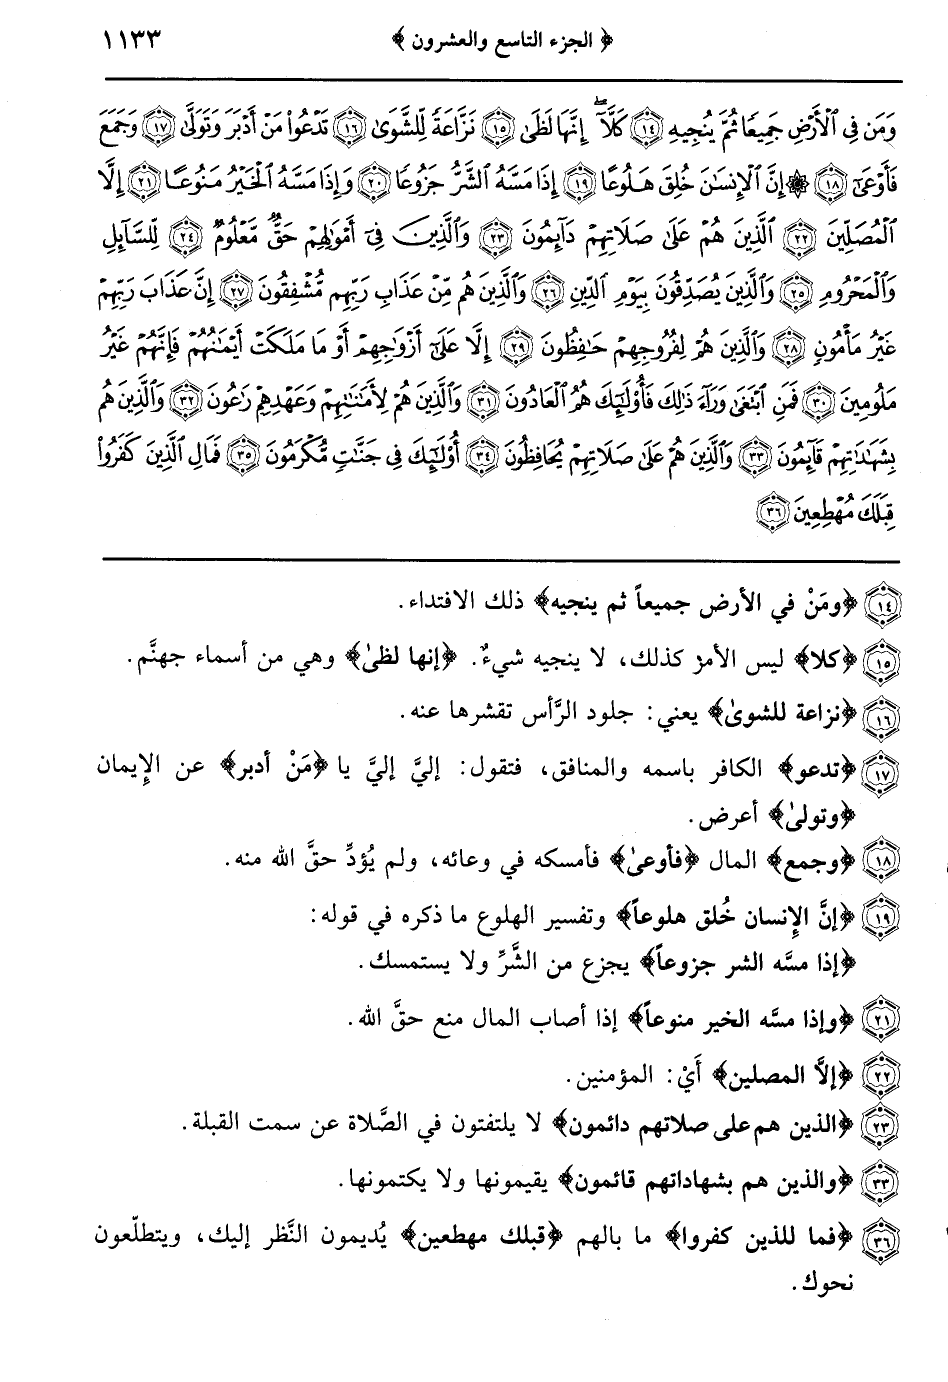 ﴿ الجزء التاسع والعشرون ﴾ ١١٣٣
وَمَن فِي ٱلۡأَرۡضِ جَمِيعٗا ثُمَّ يُنجِيهِ ١٤ كَلَّآۖ إِنَّهَا لَظَىٰ ١٥ نَزَّاعَةٗ لِّلشَّوَىٰ ١٦ تَدۡعُواْ مَنۡ أَدۡبَرَ وَتَوَلَّىٰ ١٧ وَجَمَعَ
فَأَوۡعَىٰٓ ١٨ ۞ إِنَّ ٱلۡإِنسَٰنَ خُلِقَ هَلُوعًا ١٩ إِذَا مَسَّهُ ٱلشَّرُّ جَزُوعٗا ٢٠ وَإِذَا مَسَّهُ ٱلۡخَيۡرُ مَنُوعًا ٢١ إِلَّا
ٱلۡمُصَلِّينَ ٢٢ ٱلَّذِينَ هُمۡ عَلَىٰ صَلَاتِهِمۡ دَآئِمُونَ ٢٣ وَٱلَّذِينَ فِيٓ أَمۡوَٰلِهِمۡ حَقّٞ مَّعۡلُومٞ ٢٤ لِّلسَّآئِلِ
وَٱلۡمَحۡرُومِ ٢٥ وَٱلَّذِينَ يُصَدِّقُونَ بِيَوۡمِ ٱلدِّينِ ٢٦ وَٱلَّذِينَ هُم مِّنۡ عَذَابِ رَبِّهِم مُّشۡفِقُونَ ٢٧ إِنَّ عَذَابَ رَبِّهِمۡ
غَيۡرُ مَأۡمُونٖ ٢٨ وَٱلَّذِينَ هُمۡ لِفُرُوجِهِمۡ حَٰفِظُونَ ٢٩ إِلَّا عَلَىٰٓ أَزۡوَٰجِهِمۡ أَوۡ مَا مَلَكَتۡ أَيۡمَٰنُهُمۡ فَإِنَّهُمۡ غَيۡرُ
مَلُومِينَ ٣٠ فَمَنِ ٱبۡتَغَىٰ وَرَآءَ ذَٰلِكَ فَأُوْلَٰٓئِكَ هُمُ ٱلۡعَادُونَ ٣١ وَٱلَّذِينَ هُمۡ لِأَمَٰنَٰتِهِمۡ وَعَهۡدِهِمۡ رَٰعُونَ ٣٢ وَٱلَّذِينَ هُم
بِشَهَٰدَٰتِهِمۡ قَآئِمُونَ ٣٣ وَٱلَّذِينَ هُمۡ عَلَىٰ صَلَاتِهِمۡ يُحَافِظُونَ ٣٤ أُوْلَٰٓئِكَ فِي جَنَّٰتٖ مُّكۡرَمُونَ ٣٥ فَمَالِ ٱلَّذِينَ كَفَرُواْ
قِبَلَكَ مُهۡطِعِينَ ٣٦
١٤ ﴿ومَنْ في الأرض جميعاً ثم ينجيه﴾ ذلك الافتداء.
١٥ ﴿كلا﴾ ليس الأمرُ كذلك، لا ينجيه شيءٌ. ﴿إنها لظىٰ﴾ وهي من أسماء جهنَّم.
١٦ ﴿نزاعة للشوىٰ﴾ يعني: جلود الرَّأس تقشرها عنه.
١٧ ﴿تدعو﴾ الكافر باسمه والمنافق، فتقول: إليَّ إليَّ يا ﴿مَنْ أدبر﴾ عن الإِيمان
﴿وتولىٰ﴾ أعرض.
١٨ ﴿وجمع﴾ المال ﴿فأوعىٰ﴾ فأمسكه في وعائه، ولم يُؤدِّ حقَّ الله منه.
١٩ ﴿إنَّ الإِنسان خُلق هلوعاً﴾ وتفسير الهلوع ما ذكره في قوله:
﴿إذا مسَّه الشر جزوعاً﴾ يجزع من الشَّرِّ ولا يستمسك.
٢١ ﴿وإذا مسَّه الخير منوعاً﴾ إذا أصاب المال منع حقَّ الله.
٢٢ ﴿إلاَّ المصلين﴾ أَيْ: المؤمنين.
٢٣ ﴿الذين هم على صلاتهم دائمون﴾ لا يلتفتون في الصَّلاة عن سمت القبلة.
٣٣ ﴿والذين هم بشهاداتهم قائمون﴾ يقيمونها ولا يكتمونها.
٣٦ ﴿فما للذين كفروا﴾ ما بالهم ﴿قبلك مهطعين﴾ يُديمون النَّظر إليك، ويتطلَّعون
نحوك.